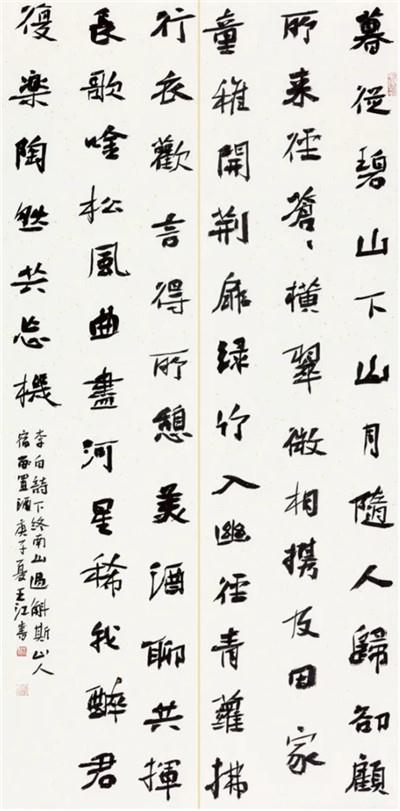 暮從碧山下山月隨人歸卻顧
所来徑蒼〻横翠微相携及田家
童稚開荆扉緑竹入幽徑青蘿拂
行衣歡言得所憩美酒聊共揮
長歌吟松風曲盡河星稀我醉君
復楽陶然共忘機
李白詩下终南山過斛斯山人
宿而置酒庚子夏王江書